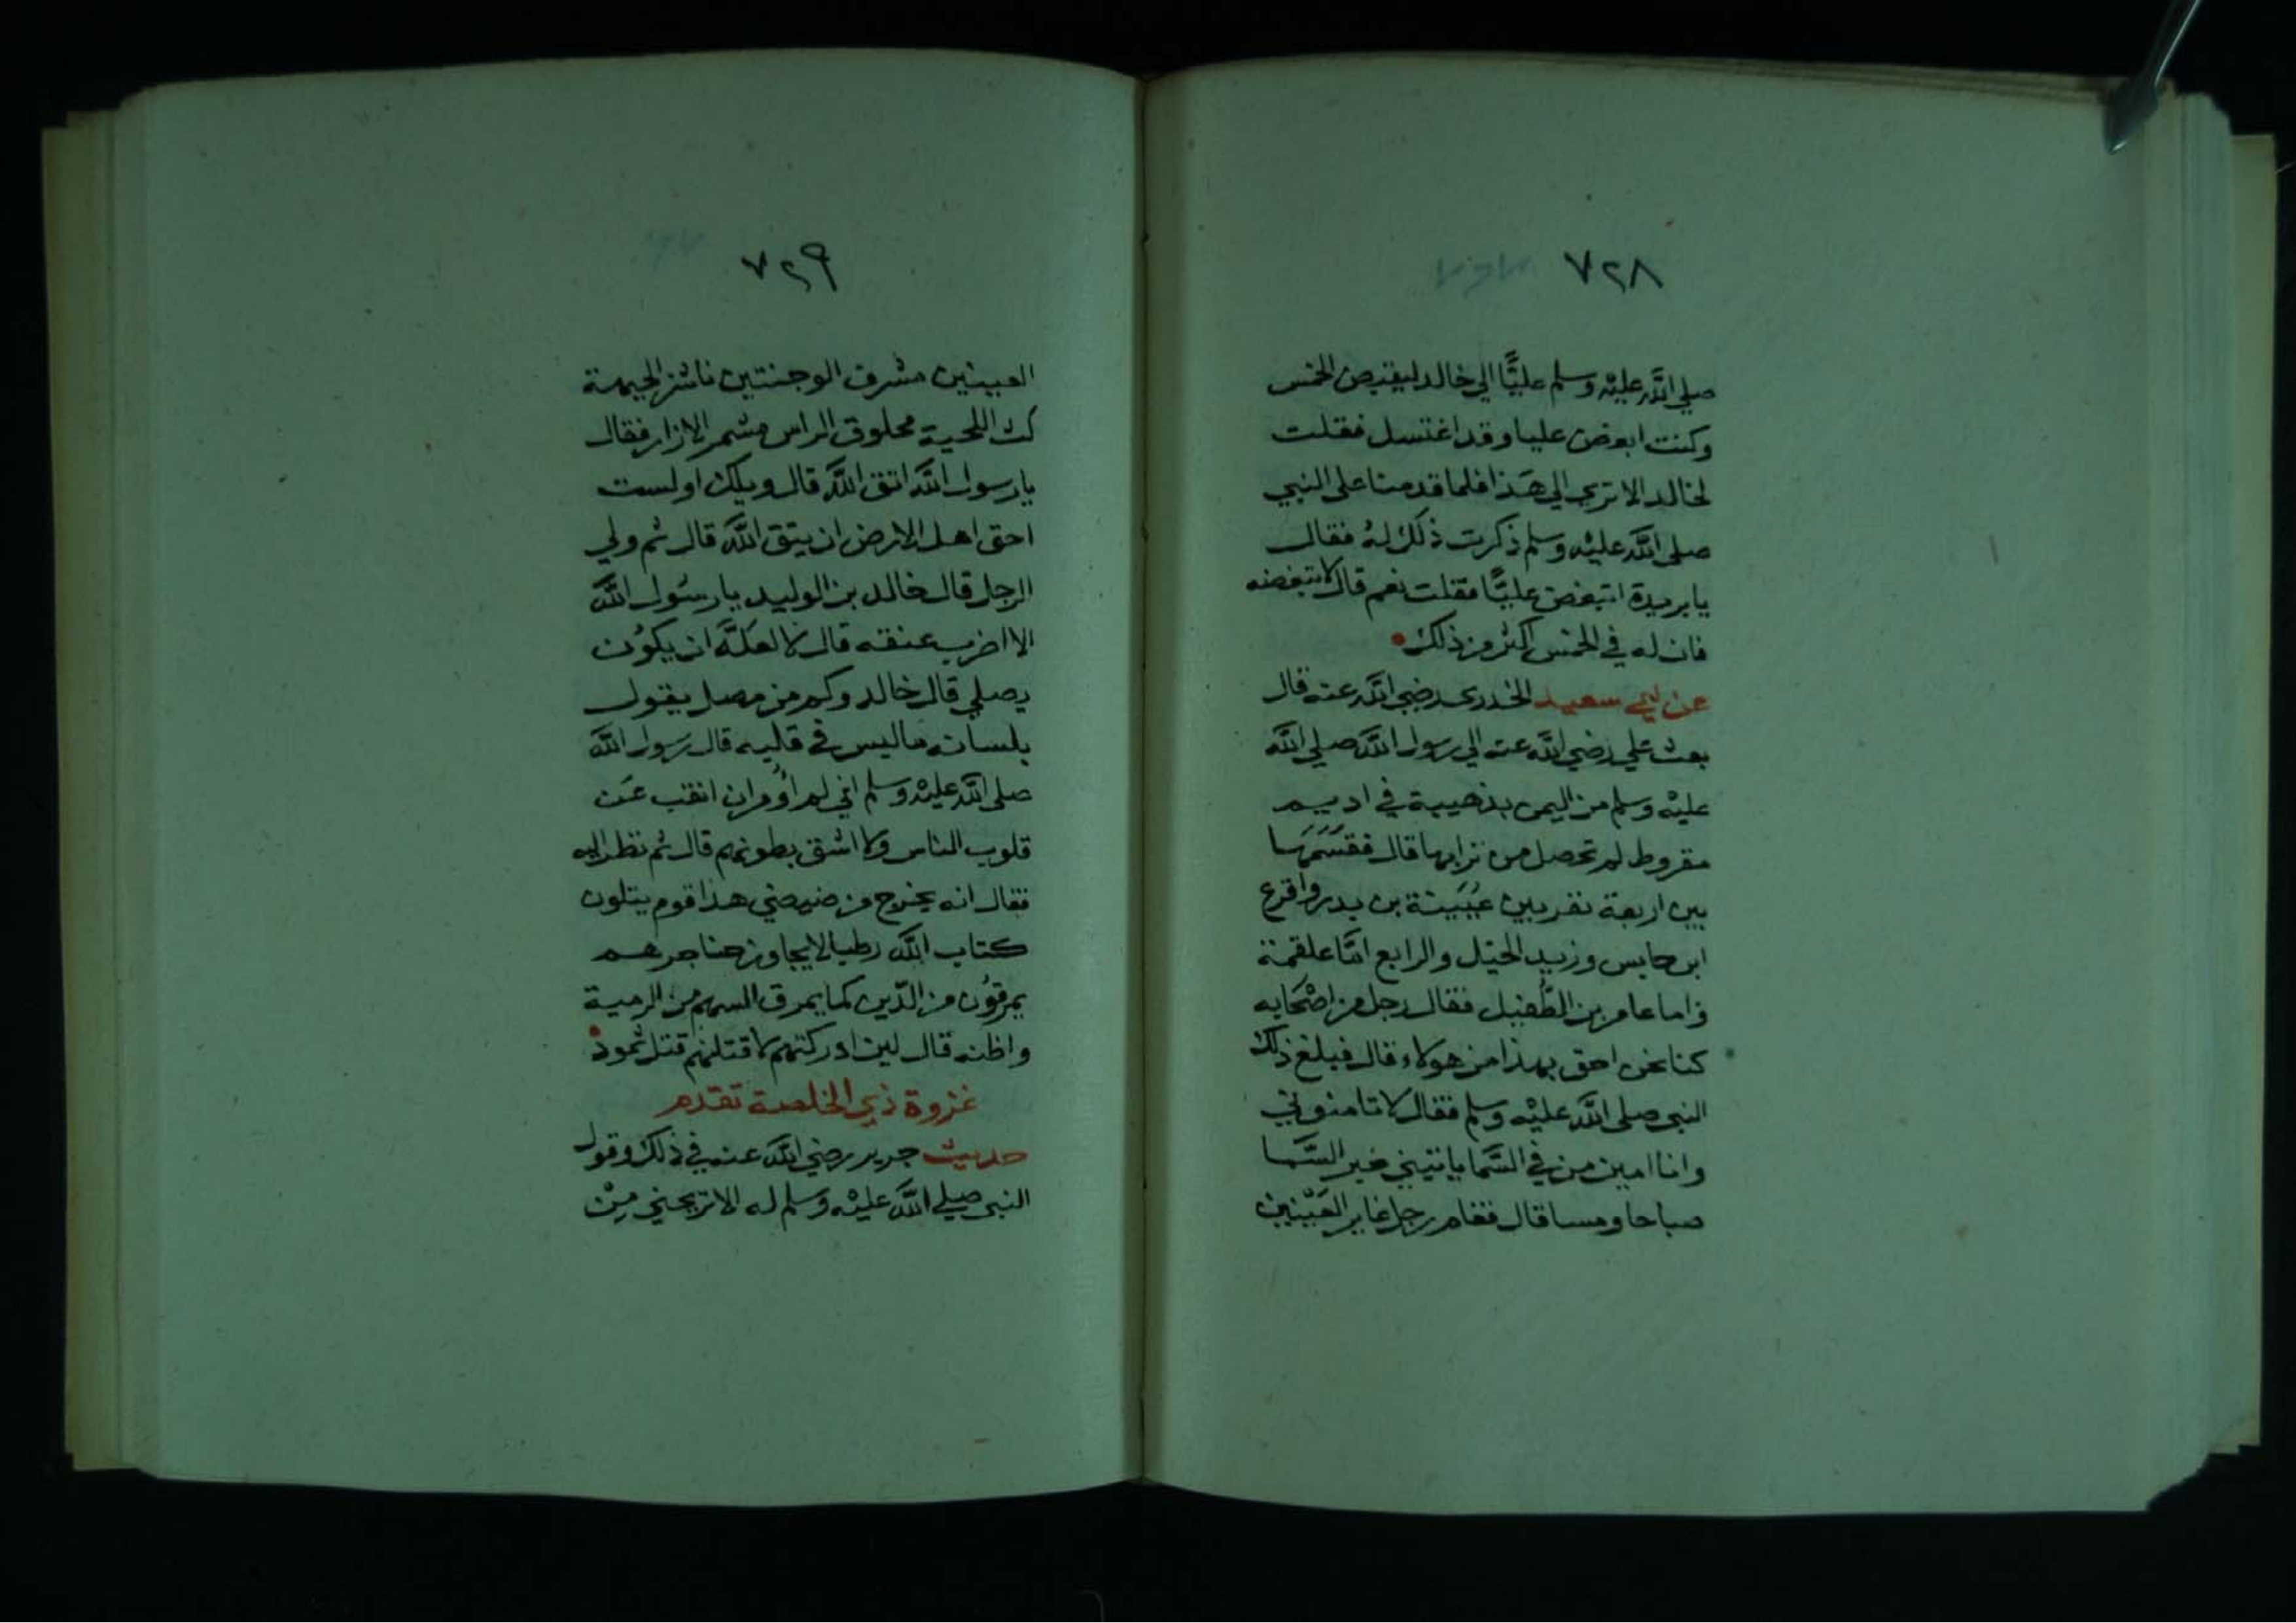 ٧٢٨
صلي الله عليه وسلم عليًّا الي خالد ليقبض الخمس
وكنت ابغض عليا وقد اغتسل فقلت
لخالد الا تري الي هذا فلما قدمنا على النبي
صلى الله عليه وسلم ذكرت ذلك له فقال
يا بريدة اتبغض عليًّا فقلت نعم قال لا تبغضه
فان له في الخمس اكثر من ذلك
عن ابي سعيد الخدري رضي الله عنه قال
بعث علي رضي الله عنه الي رسول الله صلي الله
عليه وسلم من اليمن بذهيبة في اديم
مقروط لم تحصل من ترابها قال فقسمها
بين اربعة نفر بين عيينة بن بدر واقرع
ابن حابس وزيد الخيل والرابع امّا علقمة
واما عامر بن الطفيل فقال رجل من اصحابه
كنا نحن احق بهذا من هولاء قال فبلغ ذلك
النبي صلى الله عليه وسلم فقال لا تامنوني
وانا امين من في السّما ياتيني خبر السّما
صباحا ومسا قال فقام رجل غاير العينين
٧٢٩
العينين مشرف الوجنتين ناشز الجبهة
كث اللحية محلوق الراس مشمر الازار فقال
يا رسول الله اتق الله قال ويلك اولست
احق اهل الارض ان يتق الله قال ثم ولي
الرجل قال خالد بن الوليد يا رسُول الله
الا اضرب عنقه قال لا لعلّه ان يكون
يصلي قال خالد وكم من مصل يقول
بلسانه ما ليس في قلبه قال رسول الله
صلى الله عليه وسلم اني لم أومر ان انقب عن
قلوب الناس ولا اشق بطونهم قال ثم نظر اليه
فقال انه يخرج من ضيضي هذا قوم يتلون
كتاب الله رطبا لا يجاوز حناجرهم
يمرقون من الدّين كما يمرق السهم من الرمية
واظنه قال لين ادركتهم لا قتلنهم قتل ثمود
غزوة ذي الخلصة تقدم
حديث جرير رضي الله عنه في ذلك وقول
النبي صلي الله عليه وسلم له الا تريحني من